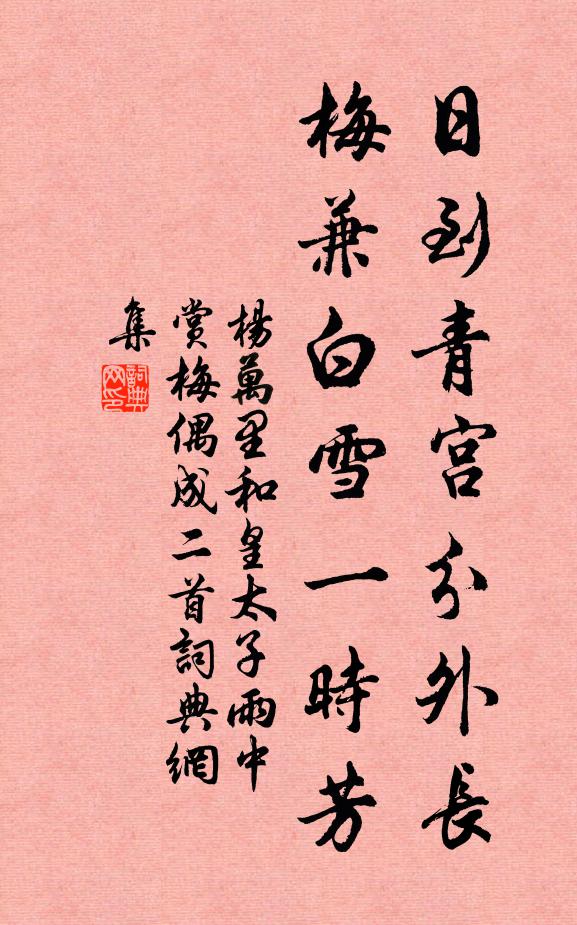 日到青宮分外長
梅兼白雪一時芳
楊萬里和皇太子雨中
賞梅偶成二首詞典網
集
詞典
网印